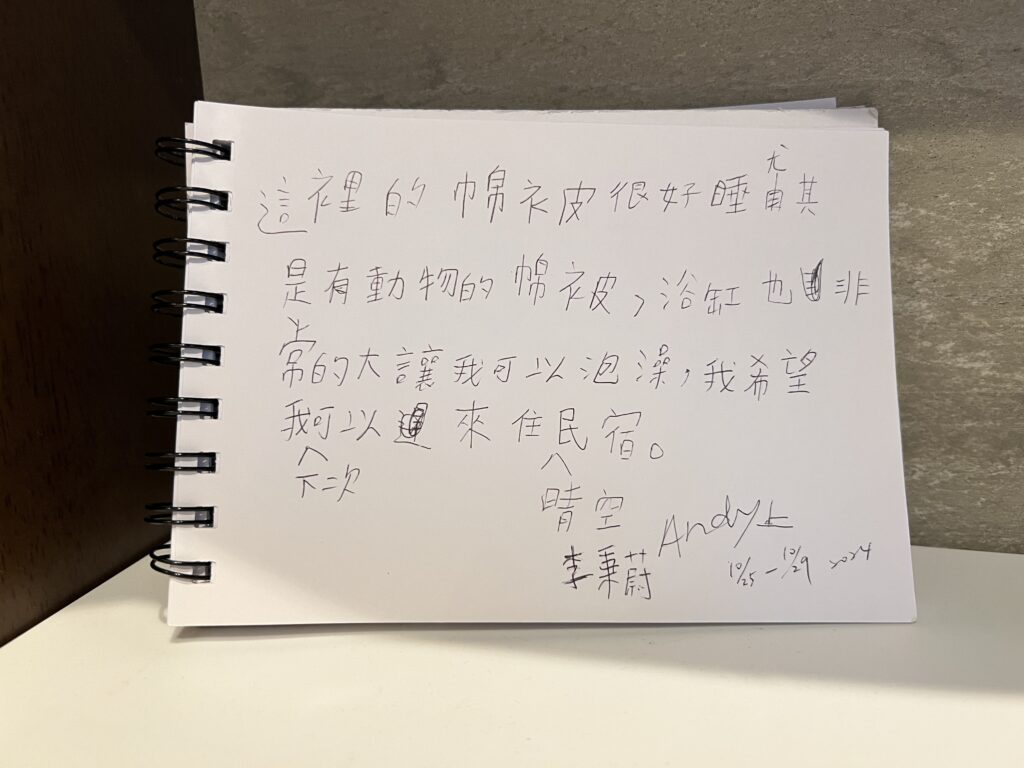 這裡的棉被很好睡尤其
是有動物的棉被，浴缸也非
常的大讓我可以泡澡，我希望
我可以來住民宿。
下次
晴空
Andy上
李秉蔚
10/25-10/29 2024